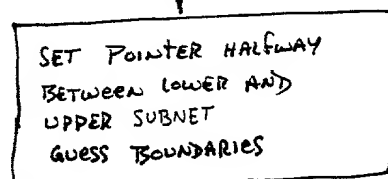 SET POINTER HALFWAY
BETWEEN LOWER AND
UPPER SUBNET
GUESS BOUNDARIES